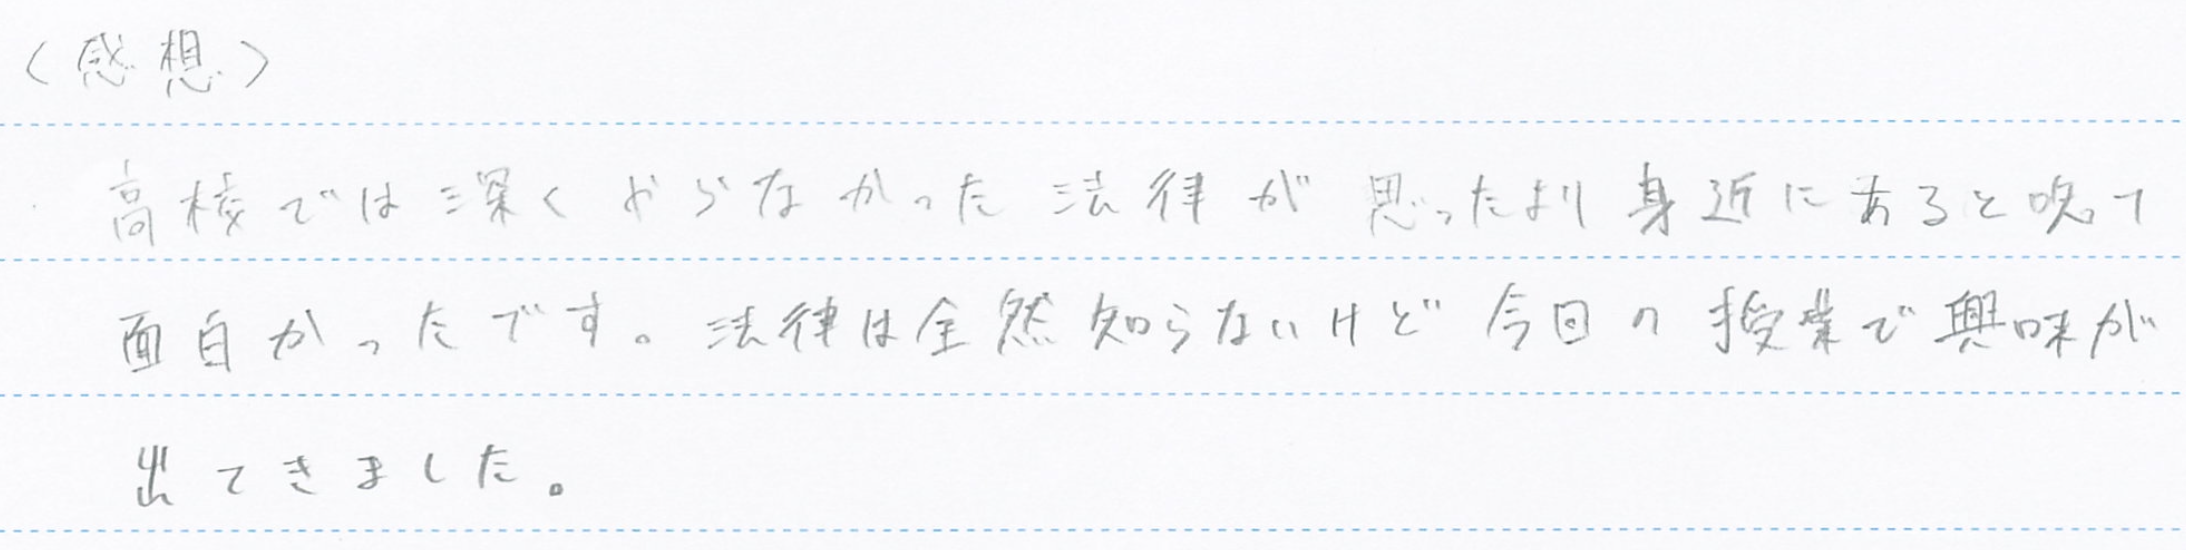 〈感想〉
高校では深くやらなかった法律が思ったより身近にあると知って
面白かったです。法律は全然知らないけど今回の授業で興味が
出てきました。